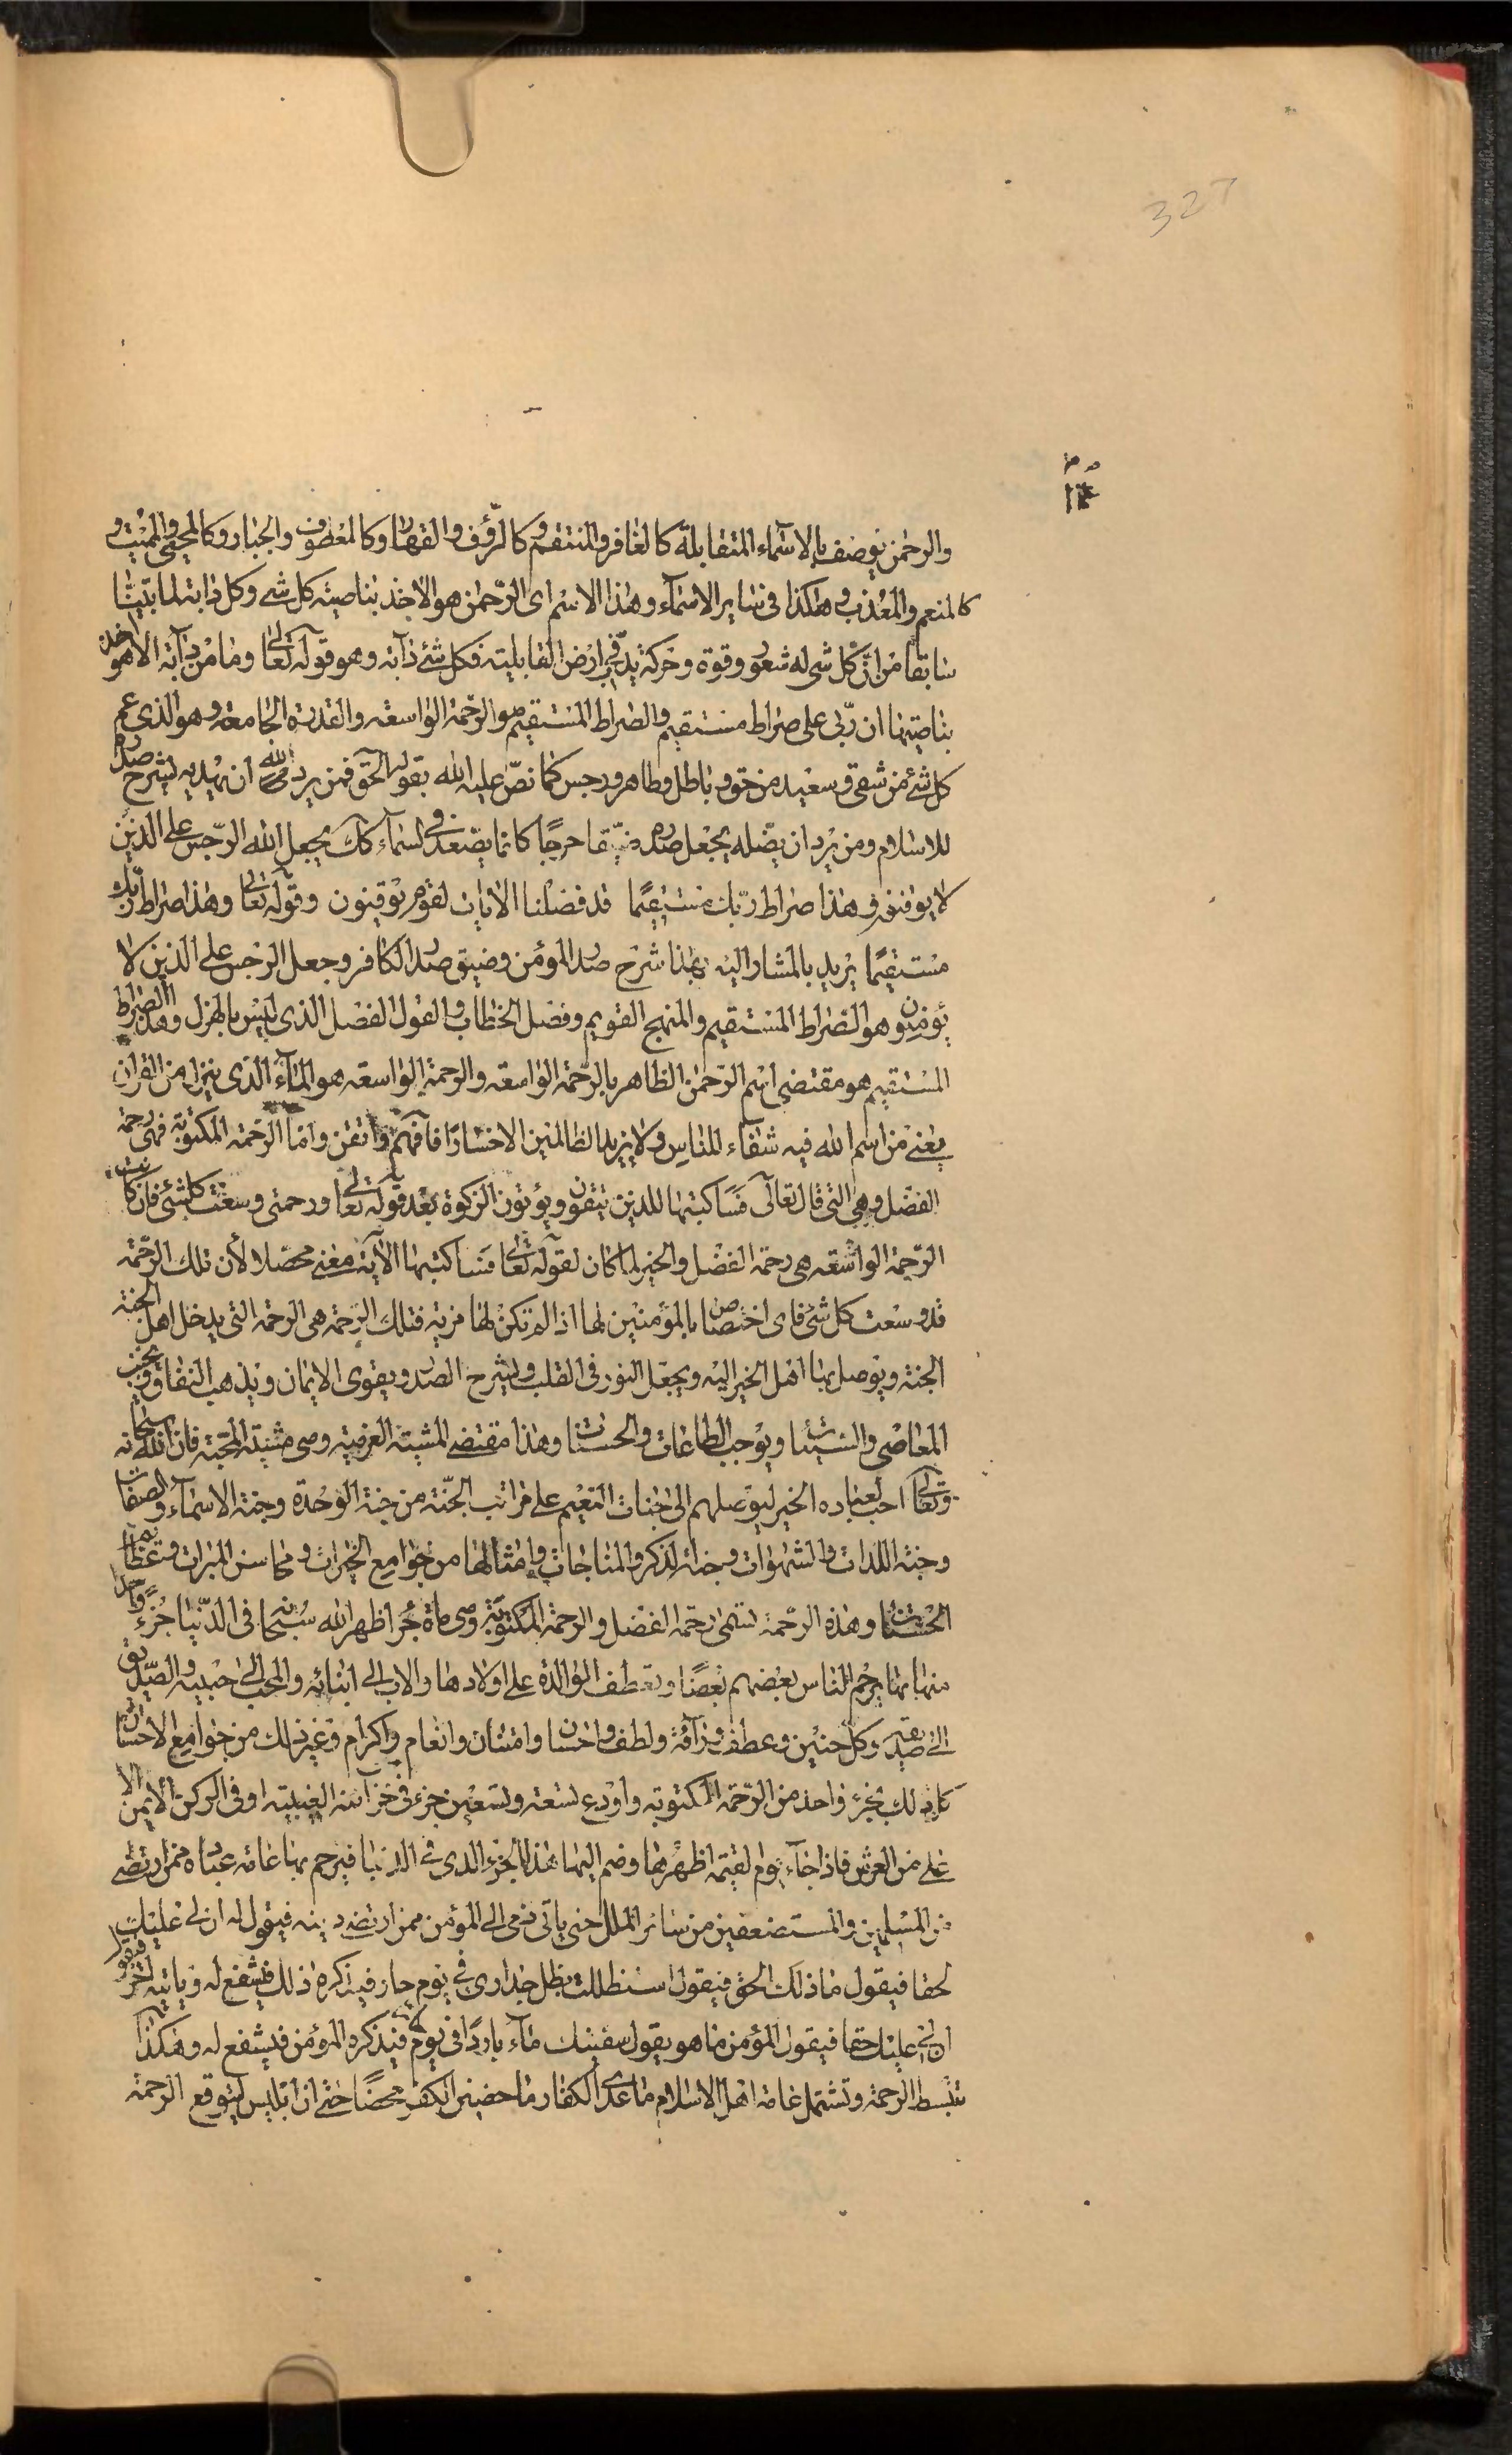 327
والرحمن يوصف بالاسماء المتقابلة كالغافر والمنتقم وكالرؤف والقهار وكالعطوف والجبار وكالمحيي والمميت و
كالمنعم والمعذب وهكذا في ساير الاسماء وهذا الاسم اى الرّحمن هو الاخذ بناصية كل شي وكل دابة لما بيّنا
سابقا من انّ كل شي له شعور وقوة وحركة يدبّ في ارض القابلية فكل شئ دآبة وهو قوله تعالى وما من دآبة الا هو اخذ
بناصيتها ان ربّي على صراط مستقيم والصراط المستقيم هو الرحمة الواسعة والقدرة الجامعة وهو الذي عم
كل شئ من شقي وسعيد من حق وباطل وطاهر ورجس كما نصّ عليه الله بقوله الحق فمن يرد الله ان يهديه يشرح صدره
للاسلام ومن يرد ان يضّله يجعل صدره ضيّقا حرجًا كانما يصّعد في السماء كك يجعل الله الرّجس على الذين
لا يؤمنون وهذا صراط ربّك مستقيمًا قد فصّلنا الايات لقوم يوقنون وقوله تعالى وهذا صراط ربك
مستقيمًا يريد بالمشار اليه بهذا شرح صدر المؤمن وضيق صدر الكافر وجعل الرجس على الذين لا
يؤمنون وهو الصراط المستقيم والمنهج القويم وفصل الخطاب والقول الفصل الذي ليس بالهزل وهذا الصراط
المستقيم هو مقتضى اسم الرّحمن الظاهر بالرّحمة الواسعة والرحمة الواسعة هو المآء الذي ينزل من القران
يعني من اسم الله فيه شفاء للناس ولا يزيد الظالمين الا خسارًا فافهم واتقن واما الرّحمة المكتوبة فهي رحمة
الفضل وهي التي قال تعالى فسَاكتبها للذين يتقون ويؤتون الزكوة بعد قوله تعالى ورحمتي وسعت كلشئ فان كانت
الرّحمة الواسعة هي رحمة الفضل والخير لما كان لقوله تعالى فساكتبها الآية معنى محصّلا لأن تلك الرّحمة
قد وسعت كل شئ فاى اختصاص بالمؤمنين لها اذا لم تكن لها مزية فتلك الرحمة هي الرحمة التي يدخل اهل الجنة
الجنة ويوصل بها اهل الخير اليه ويجعل النور في القلب ويشرح الصدر ويقوى الايمان ويذهب النفاق ويجنب
المعاصي والسيئات ويوجب الطاعات والحسنات وهذا مقتضى المشية العرضية وهي مشية المحبة فان الله سبحانه
وتعالى احب لعباده الخير ليوصلهم الى جنات النعيم على مراتب الجنّة من جنة الوحدة وجنة الاسماء والصفات
وجنة اللذات والشهوات وجنة الذكر والمناجات وامثالها من جوامع الخيرات ومحاسن المبرات وعظايم
الحسنات وهذه الرّحمة تسمى رحمة الفضل والرحمة المكتوبة وهي ماة جزء اظهر الله سبحانه في الدّنيا جُزءً واحدا
منها بها يرحم الناس بعضهم بعضًا وتعطف الوالدة على اولادها والاب الى ابنائه والمحب الى حبيبه والصّديق
الى صديقه وكل حنين وعطف ورآفة ولطف واحسان وامتنان وانعام واكرام وغير ذلك من جوامع الأحسان
كل ذلك بجزء واحد من الرّحمة المكتوبة واودع تسعة وتسعين جزء في خزآئنه الغيبية او في الركن الأيمن الا
على من العرش فاذا جآء يوم القيمة اظهرها وضم اليها هذا الجزء الذي في الدنيا فيرحم بها عامة عباده ممن ارتضى
من المسلمين والمستضعفين من سائر الملل حتى ياتي ذمي الى المؤمن ممن ارتضى دينه فيقول له ان لي عليك
لحقا فيقول ما ذلك الحق فيقول استظللت بظل جداري في يوم حار فيذكره ذلك فيشفع له وياتيه آخر فيقول
ان لي عليك حقا فيقول المؤمن ما هو يقول سقيتك مآء باردًا في يوم فيذكره المؤمن فيشفع له وهكذا
تنبسط الرحمة وتشتمل عامة اهل الاسلام ما عدى الكفار ماحضين الكفر محضًا حتى ان ابليس ليتوقع الرحمة